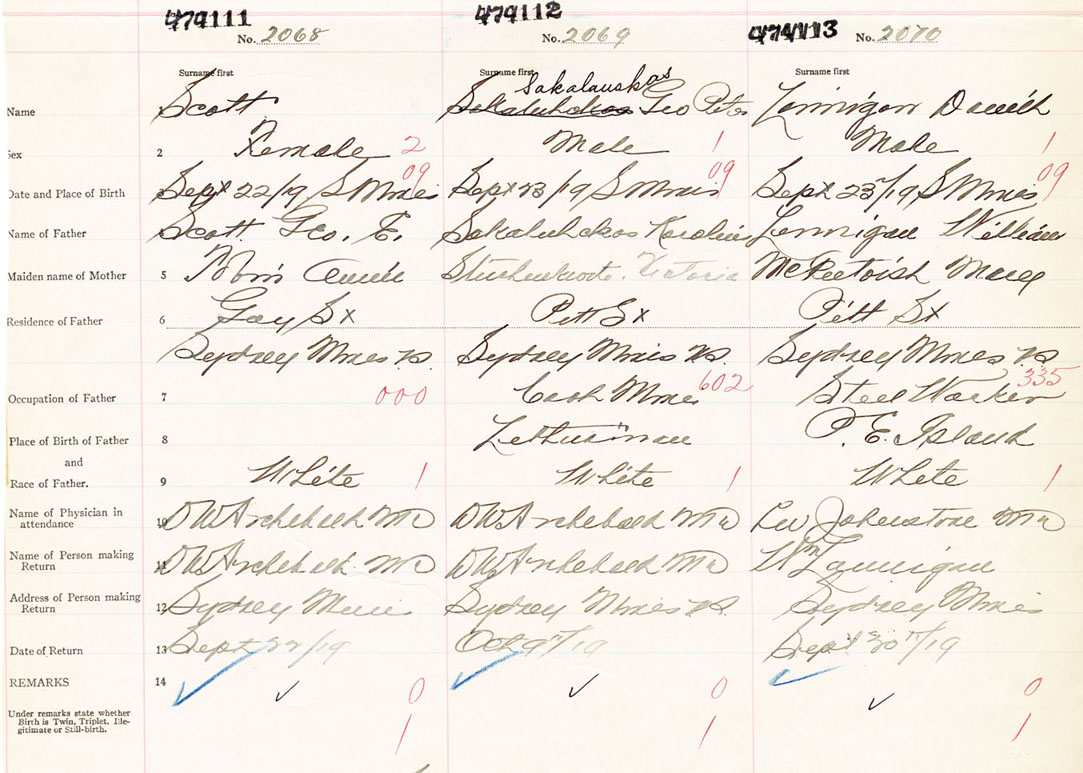 479111 479112 474113
No. 2068 No. 2069 No. 2070
Surname first Surname first Surname first
Sakalauskas
Name Scott Geo Peter Lannigan
Sex 2 Female 2 Male 1 Male 1
09 09 09
Date and Place of Birth Sept 22/19, S Mines Sept 23/19, S Mines Sept 23/19, S Mines
Name of Father Scott Geo. E. Lannigan William
Maiden name of Mother 5 Annie Victoria
Residence of Father 6 Gay St Pitt St Pitt St
Sydney Mines Sydney Mines Sydney Mines
Occupation of Father 7 000 602 Steel Worker 335
Place of Birth of Father 8 P. E. Island
and
Race of Father. 9 White 1 White 1 White 1
Name of Physician in
attendance 10 DW Archibald MD DW Archibald MD Johnstone MD
Name of Person making
Return 11 DW Archibald MD DW Archibald MD Wm Lannigan
Address of Person making
Return 12 Sydney Mines Sydney Mines Sydney Mines
Date of Return 13 Sept 22/19 Oct 9th/19 Sept 30th/19
REMARKS 14 ✓ ✓ ✓ ✓ ✓ ✓
0 0 0
Under remarks state whether
Birth is Twin, Triplet, Ille-
gitimate or Still-birth.
1 1 1